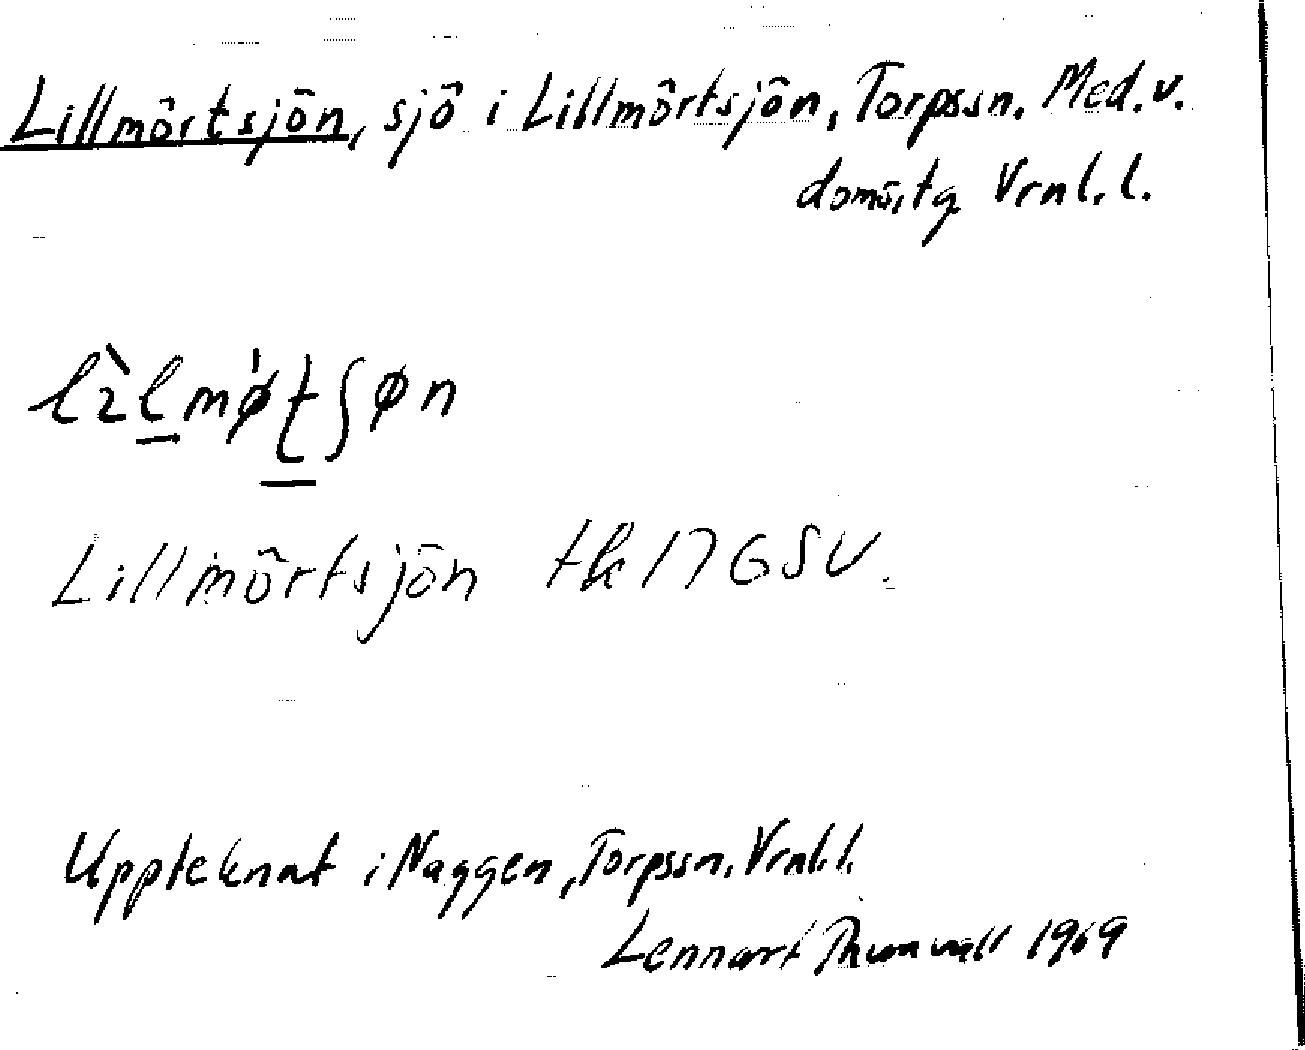 Lillmörtsjön, sjö i Lillmörtsjön, Torpssn. Med. v.
doms,tg Vrnl.l.
lìlmǿtʃøn
Lillmörtsjön tk 17 GSV.
Uppteknat i Naggen, Torpssn. Vrnl.l.
Lennart Thunvall 1969